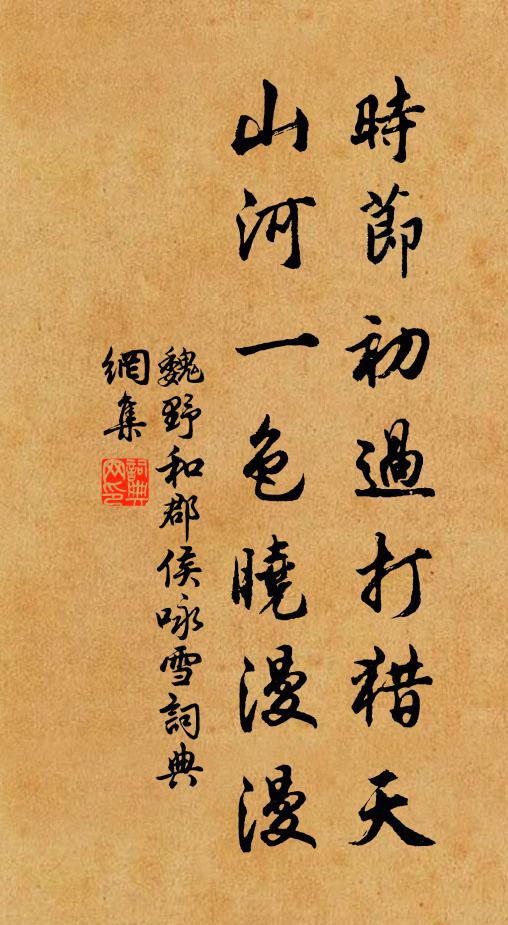 時節初過打猎天
山河一色曉漫漫
魏野和郡侯咏雪詞典
網集
詞典
网印